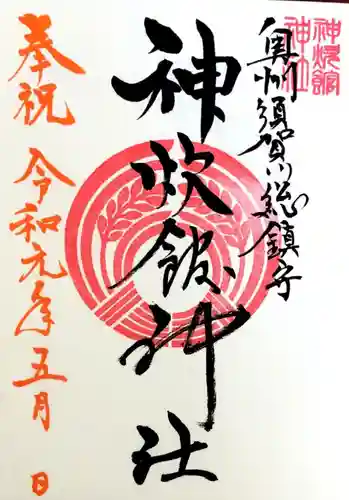 神炊館
神社
奥州須賀川総鎮守
神炊館神社
奉祝 令和元年五月 日